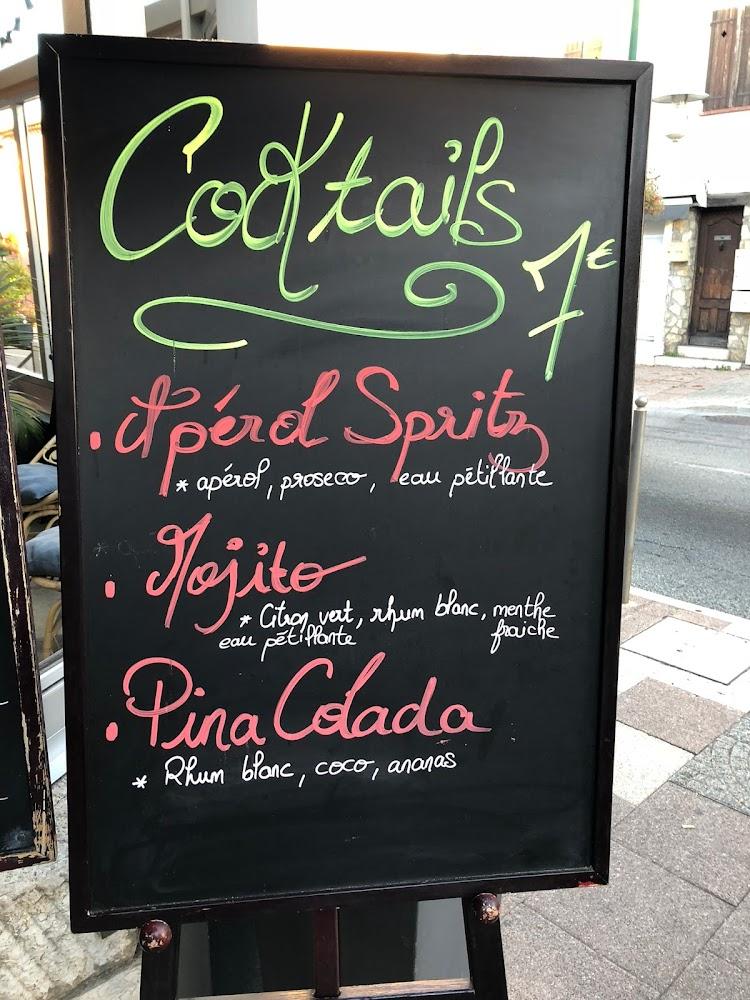 Cocktails
7€
• Apérol Spritz
* apérol, proseco, eau pétillante
• Mojito
* Citron vert, rhum blanc, menthe
eau pétillante fraiche
• Pina Colada
* Rhum blanc, coco, ananas